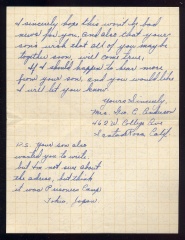 I sincerely hope this won't be bad
news for you, and also that your
sons wish that all of you may be
together soon, will come true.
If I should happen to hear more
from your son, and you would like
I will let you know
Yours Sincerely,
Mrs. Geo. C. Anderson
462 W. College Ave
Santa Rosa, Calif.
P.S. Your son also
wanted you to write
but I'm not sure about
the adress, but think
it was Prisoners Camp
Tokio, Japan.